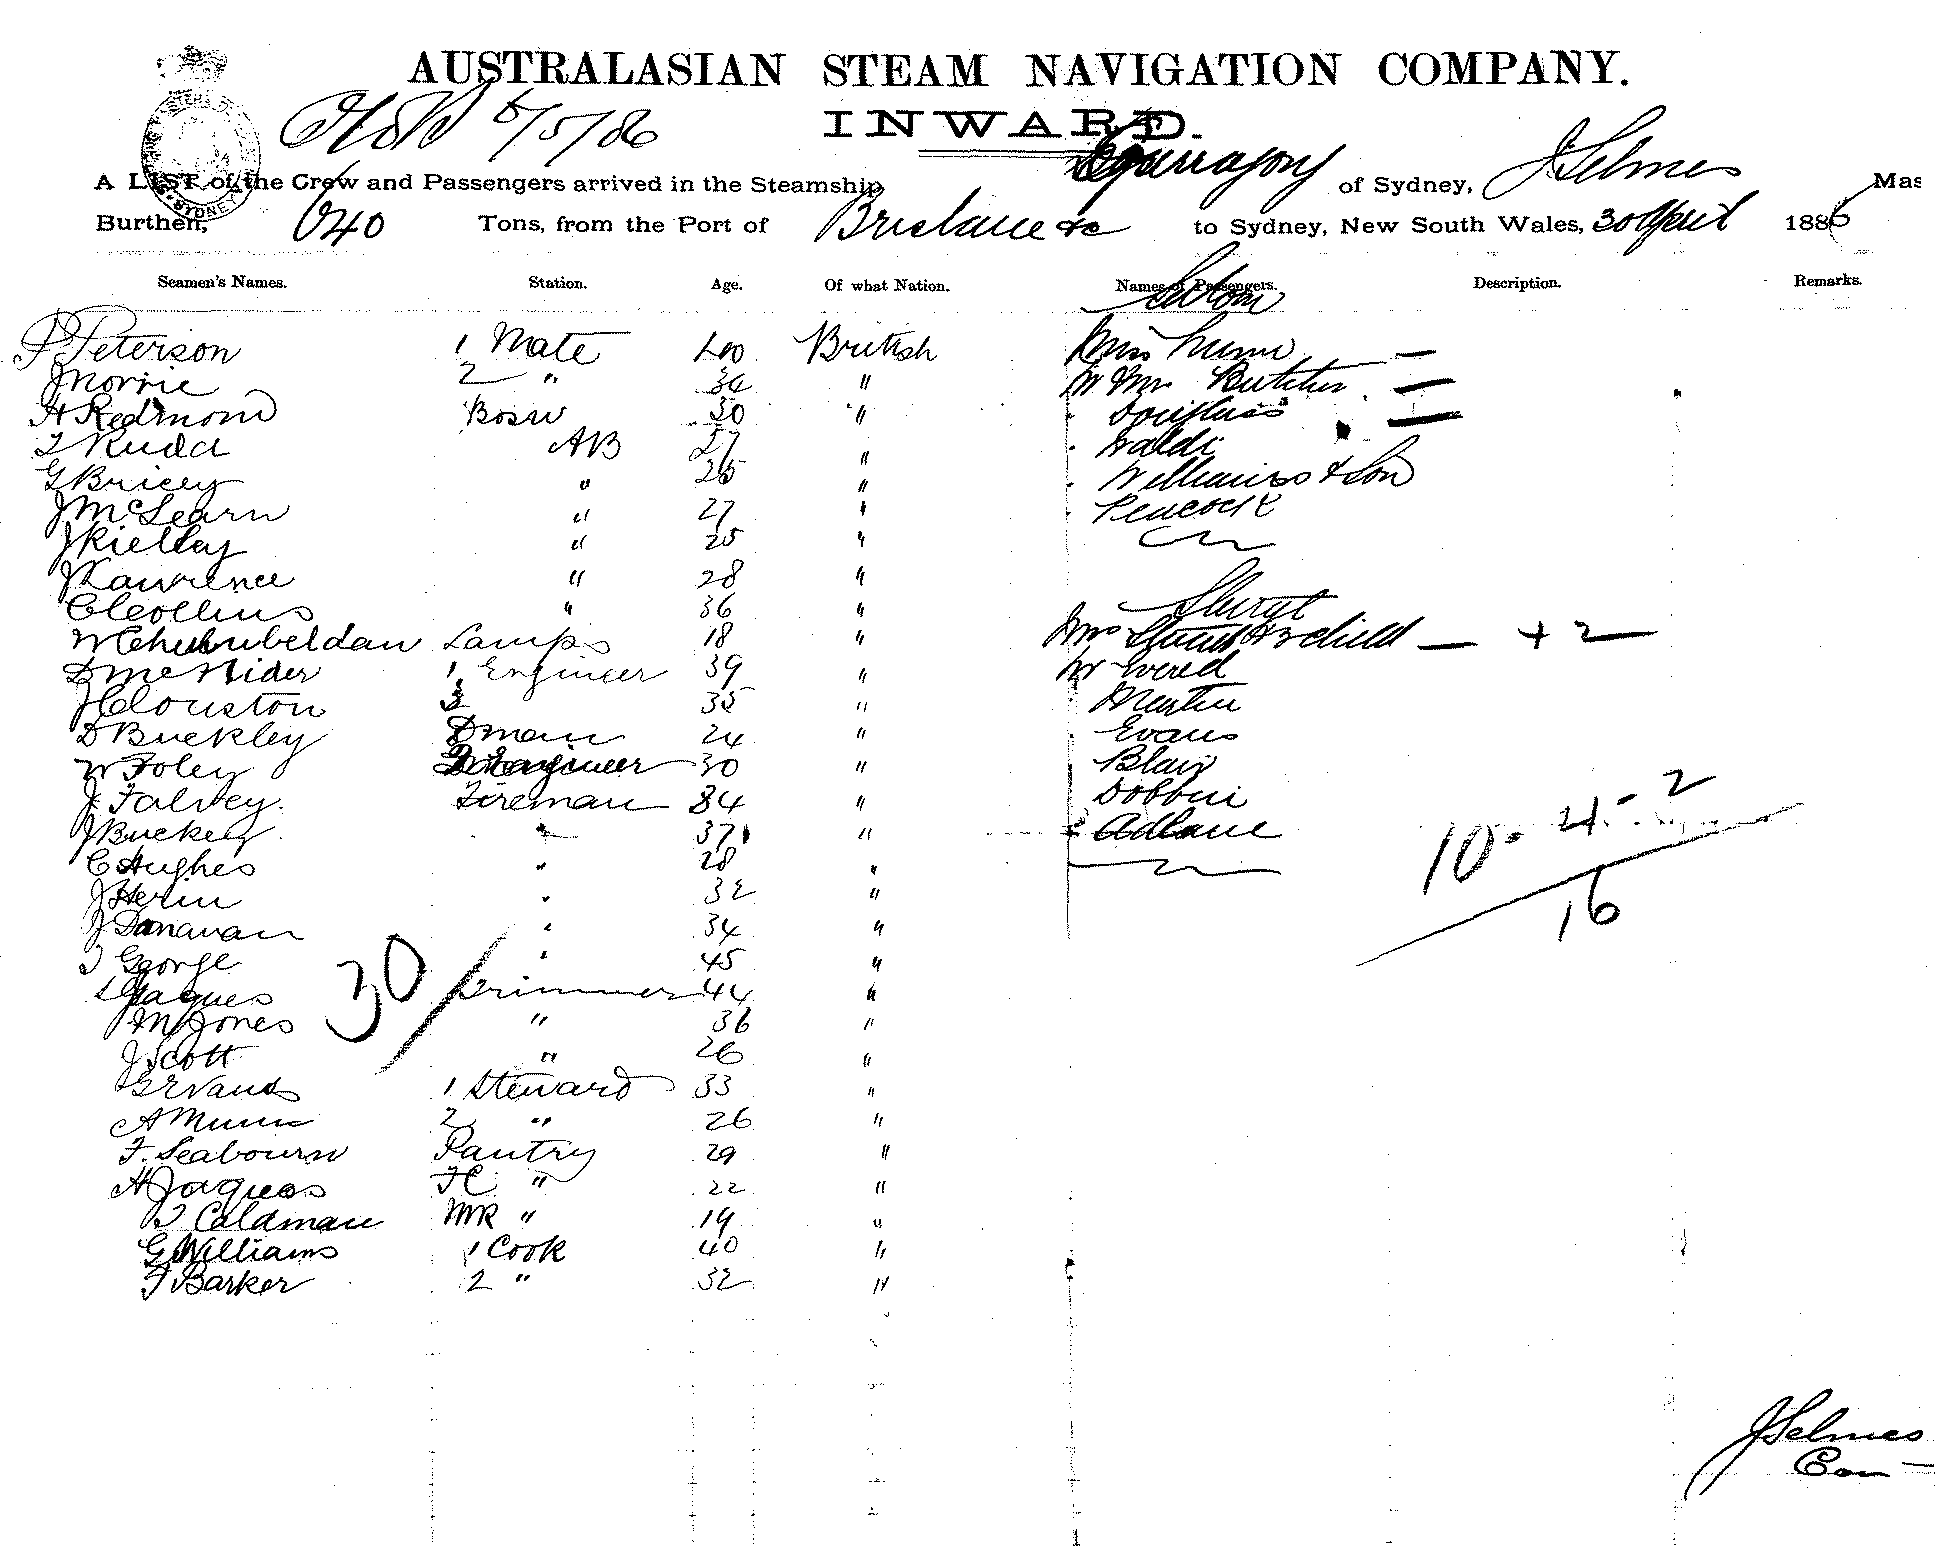 AUSTRALASIAN STEAM NAVIGATION COMPANY.
5/5/86 INWARD.
A LIST of the Crew and Passengers arrived in the Steamship of Sydney, J Selmes Mas
Burthen, 640 Tons, from the Port of Brisbane &c to Sydney, New South Wales, 30 April 1886
Seamen's Names. Station. Age. Of what Nation. Names of Passengers. Description. Remarks.
Saloon
P Peterson 1 Mate 40 British Miss
J Norrie 2 " 34 " Mr Butcher —
H Redmond Bosn 30 " Douglass —
T Rudd AB 27 " Waldi
G Bricey " 25 " Williams & Son
J McLearn " 27 " Peacock
J Rielley " 25 "
J Lawrence " 28 "
C Collins " 36 " Steerage
W Lamps 18 " Mrs & 2 child — + 2 —
D McNider 1 Engineer 39 " Mr Evered
J Clouston 2 35 " Martin
D Buckley Dman 24 " Evans
W Foley 30 " Blair
J Falvey Fireman 34 " Dobbin
J Buckey " 37 "
C Hughes " 28 "
J " 32 "
J Donavan " 34 "
T George " 45 "
Jaques Trimmer 44 "
M Jones " 36 "
J Scott " 26 "
G Evans 1 Steward 33 "
A Munn 2 " 26 "
F. Seabourn Pantry 29 "
H Jaques FC " 22 "
T Coldman MR " 19 "
G Williams 1 Cook 40 "
F Barker 2 " 32 "
30/
10 - 4 - 2
16
J Selmes